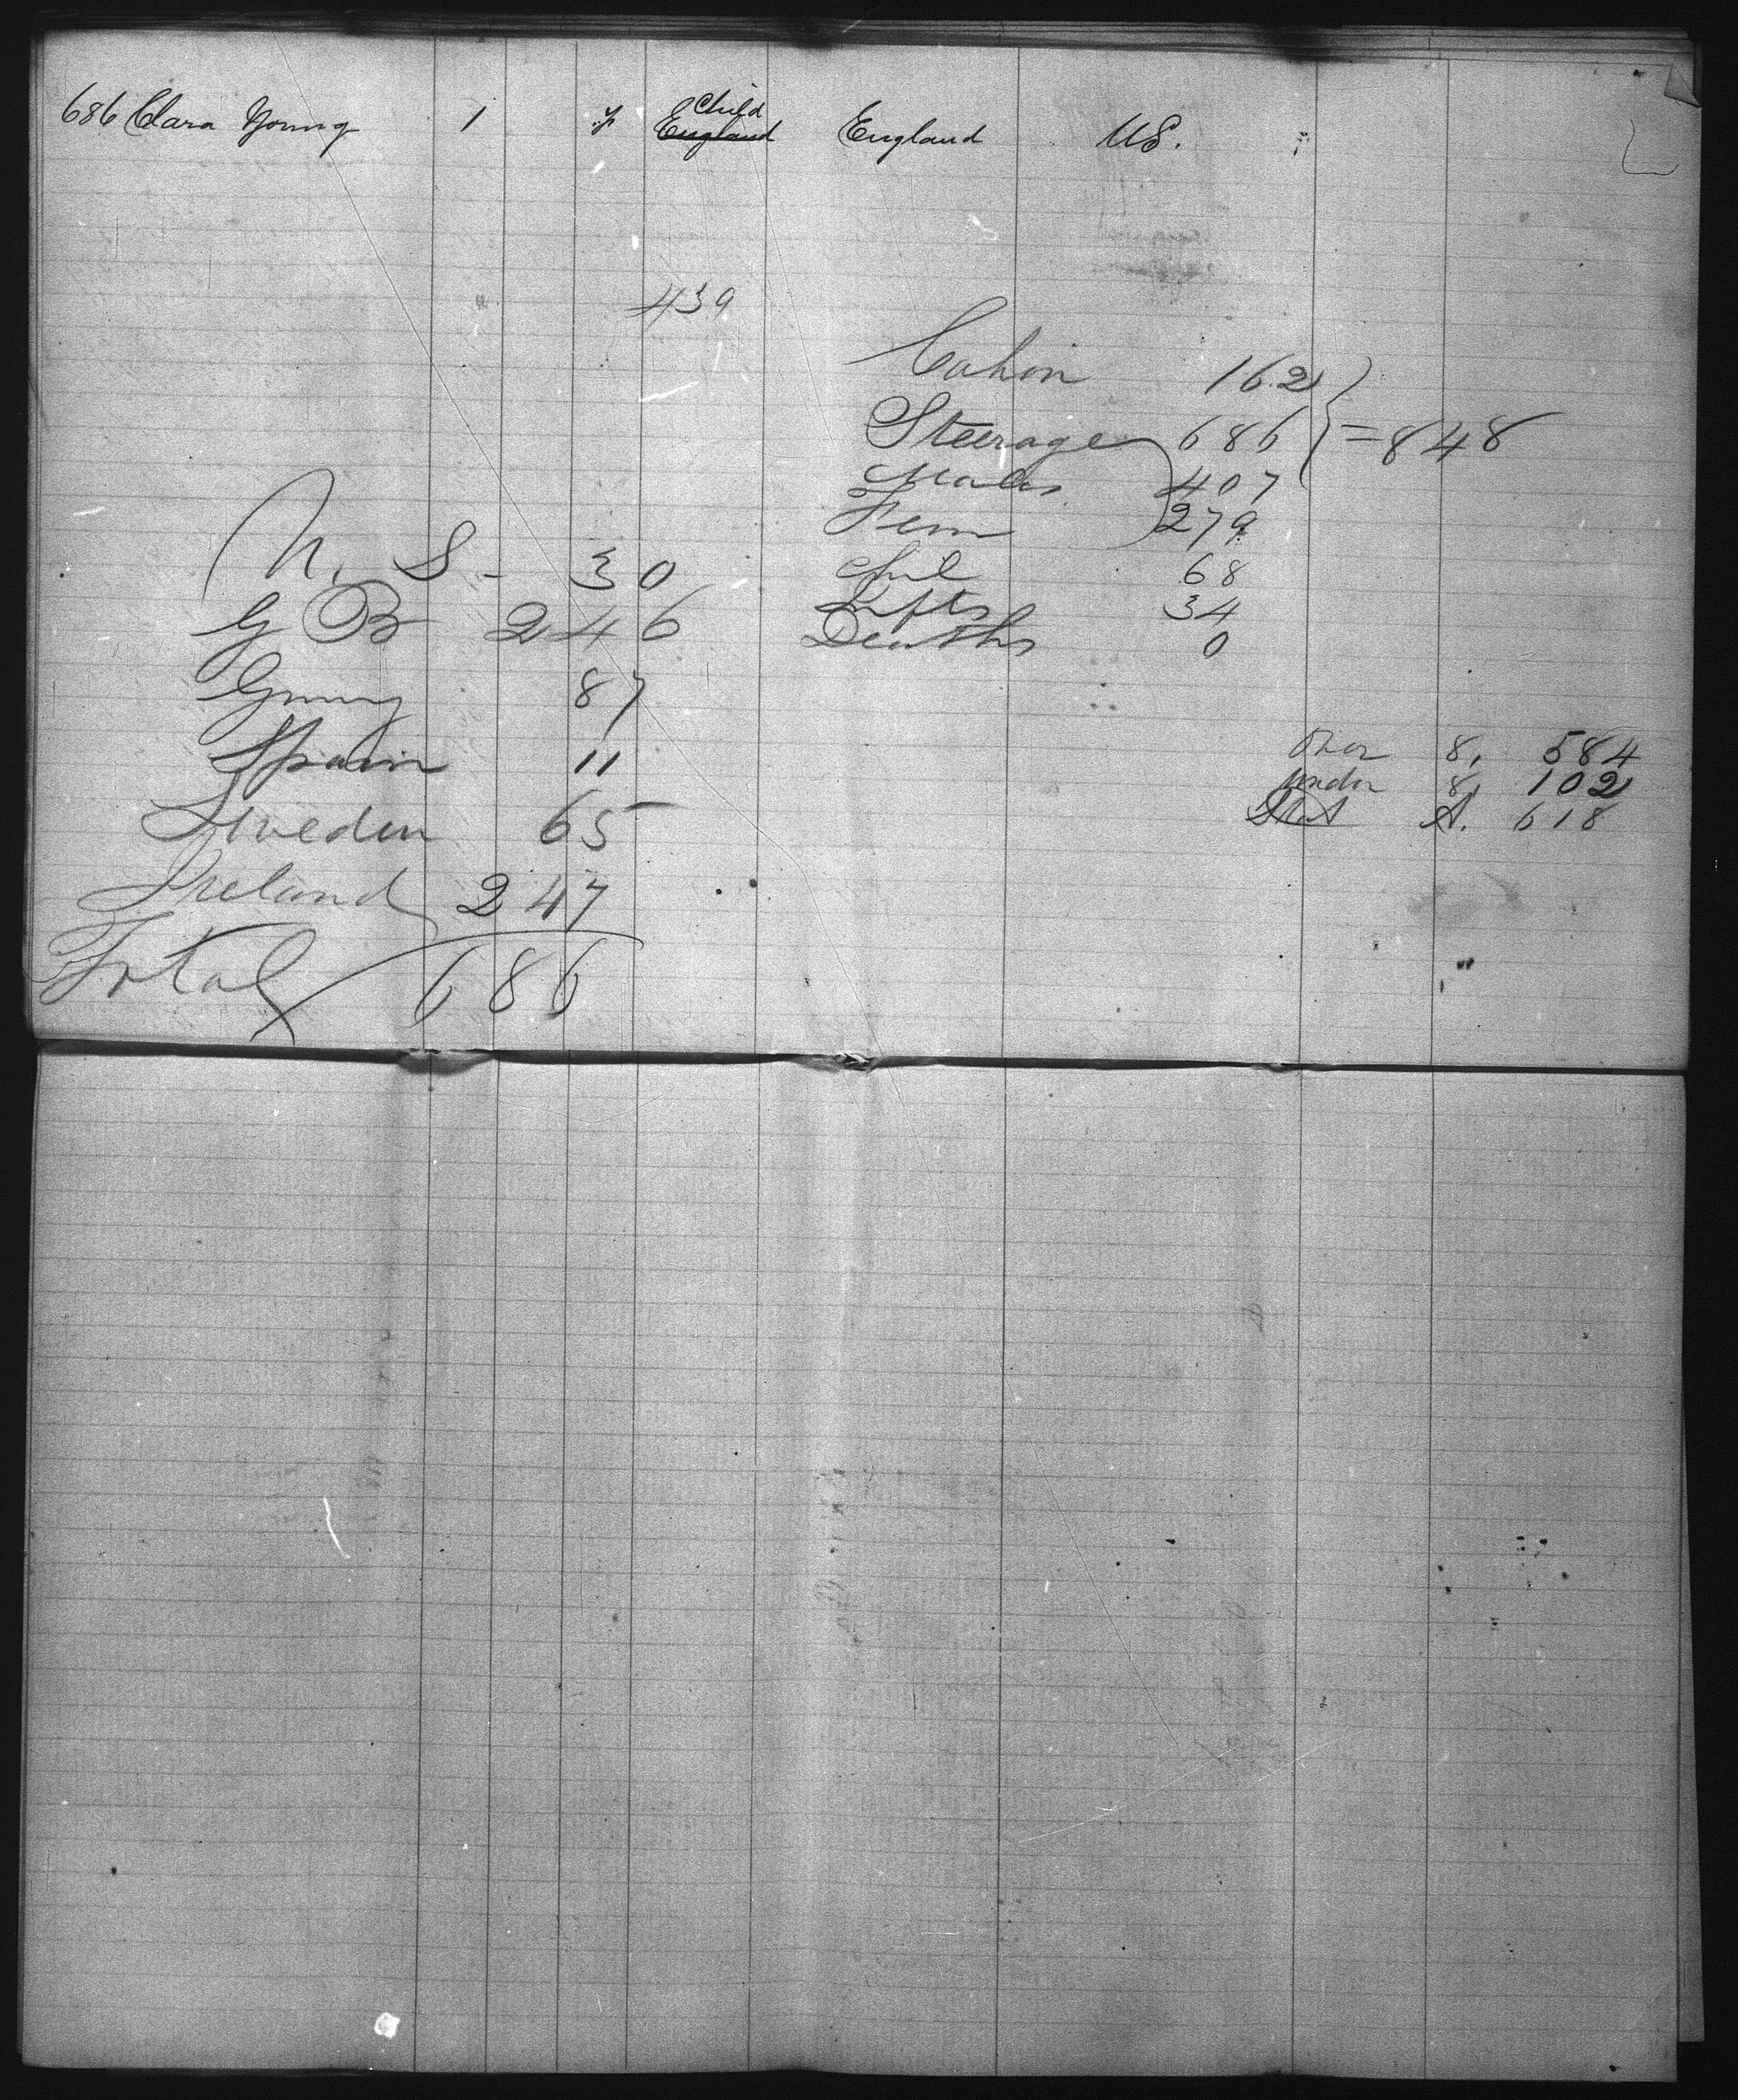 686 Clara Young 1 f Child England England US.
439
Cabin 162
Steerage 686 } = 848
Males 407
Fem 279
Chil 68
Infts 34
Deaths 0
U. S - 30
G B 246
Gmny 87
Spain 11
Sweden 65
Ireland 247
Total 686
Over 8, 584
under 8, 102
Stat A. 618